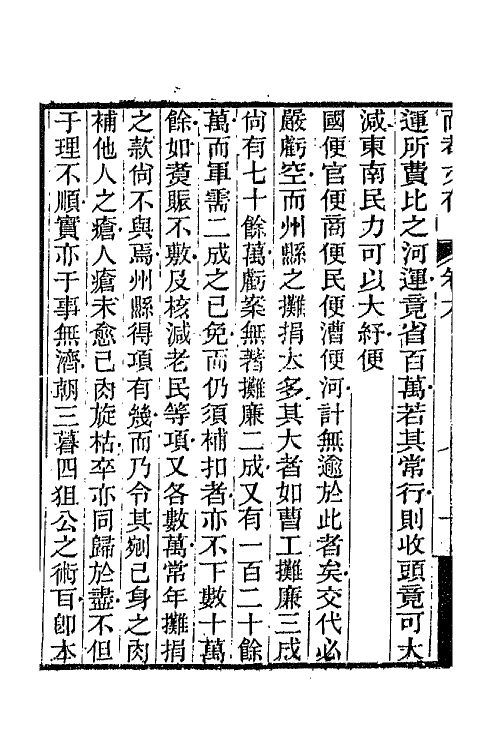 運所費比之河運竟省百萬若其常行則收頭竟可大
減東南民力可以大紓便
國便官便商便民便漕便河計無逾於此者矣交代必
嚴虧空而州縣之攤捐太多其大者如曹工攤廉三成
尙有七十餘萬虧案無著攤廉二成又有一百二十餘
萬而軍需二成之已免而仍須補扣者亦不下數十萬
餘如賚賑不敷及核減老民等項又各數萬常年攤捐
之款尙不與焉州縣得項有幾而乃令其剜己身之肉
補他人之瘡人瘡未愈己肉旋枯卒亦同歸於盡不但
于理不順實亦于事無濟朝三暮四狙公之術百卽本